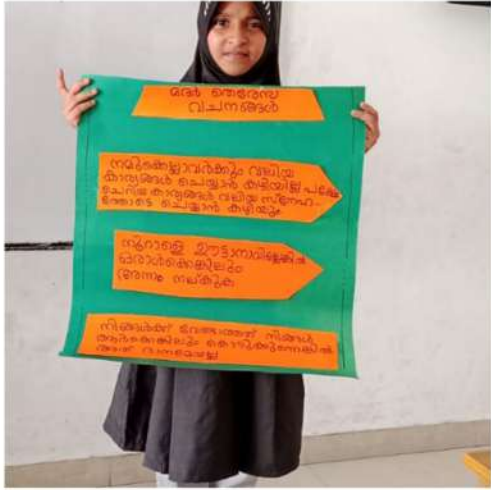 മദർ തെരേസ
വചനങ്ങൾ
നമുക്കെല്ലാവർക്കും വലിയ
കാര്യങ്ങൾ ചെയ്യാൻ കഴിയില്ല പക്ഷേ
ചെറിയ കാര്യങ്ങൾ വലിയ സ്നേഹ-
ത്തോടെ ചെയ്യാൻ കഴിയും
നൂറാളെ ഊട്ടാനാവില്ലെങ്കിൽ
ഒരാൾക്കെങ്കിലും
അന്നം നല്കുക
നിങ്ങൾക്ക് വേണ്ടാത്തത് നിങ്ങൾ
ആർക്കെങ്കിലും കൊടുക്കുന്നെങ്കിൽ
അത് ദാനമല്ല